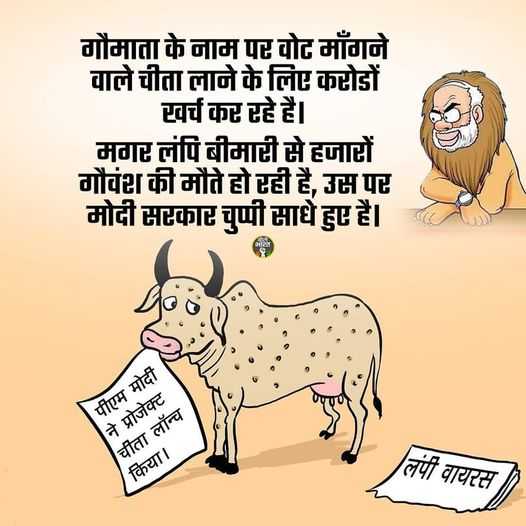 गौमाता के नाम पर वोट माँगने
वाले चीता लाने के लिए करोडों
खर्च कर रहे है।
मगर लंपि बीमारी से हजारों
गौवंश की मौते हो रही है, उस पर
मोदी सरकार चुप्पी साधे हुए है।
भारत
पीएम मोदी
ने प्रोजेक्ट
चीता लॉन्च
किया।
लंपी वायरस